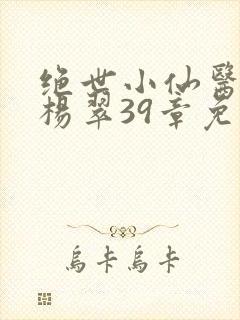 绝世小仙醫
楊翠39章免
烏卡烏卡